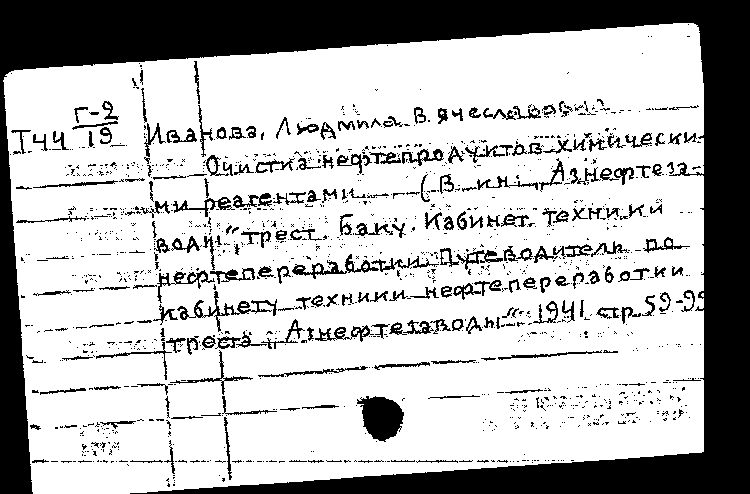 Г-2
Т44 19 Иванова, Людмила Вячеславовна
Очистка нефтепродуктов химически-
ми реагентами. (В кн: „Азнефтеза-
воды“, трест. Баку. Кабинет техники
нефтепереработки Путеводитель по
кабинету техники нефтепереработки
треста „Азнефтезаводы“. 1941 стр 59-99